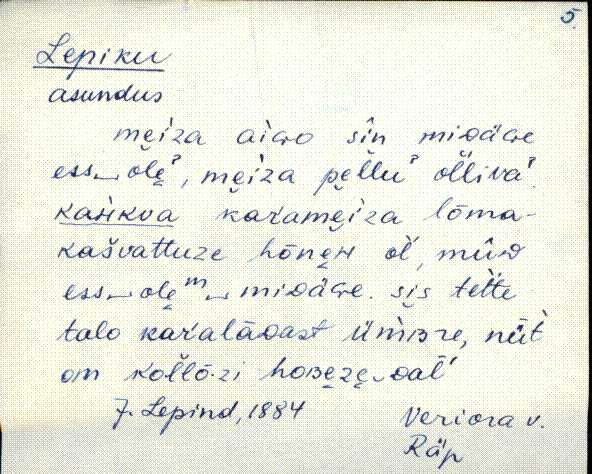 5.
Lepiku
asundus
mę̀iza aiɢo sîn miᴅäɢe
ess‿olę̀ˀ, mę̀iza pęl̆luˀ ol̆livaˀ.
kasikva karamęiza lōma-
kašvattuze hōnęʜ oĺ, mūᴅ
ess‿olęᵐ‿miᴅäɢe. sìs tette
talo karalāᴅast ümʙre, nüt
om kollō·zi hoʙęzę‿daĺ
J. Lepind, 1884
Veriora v.
Räp